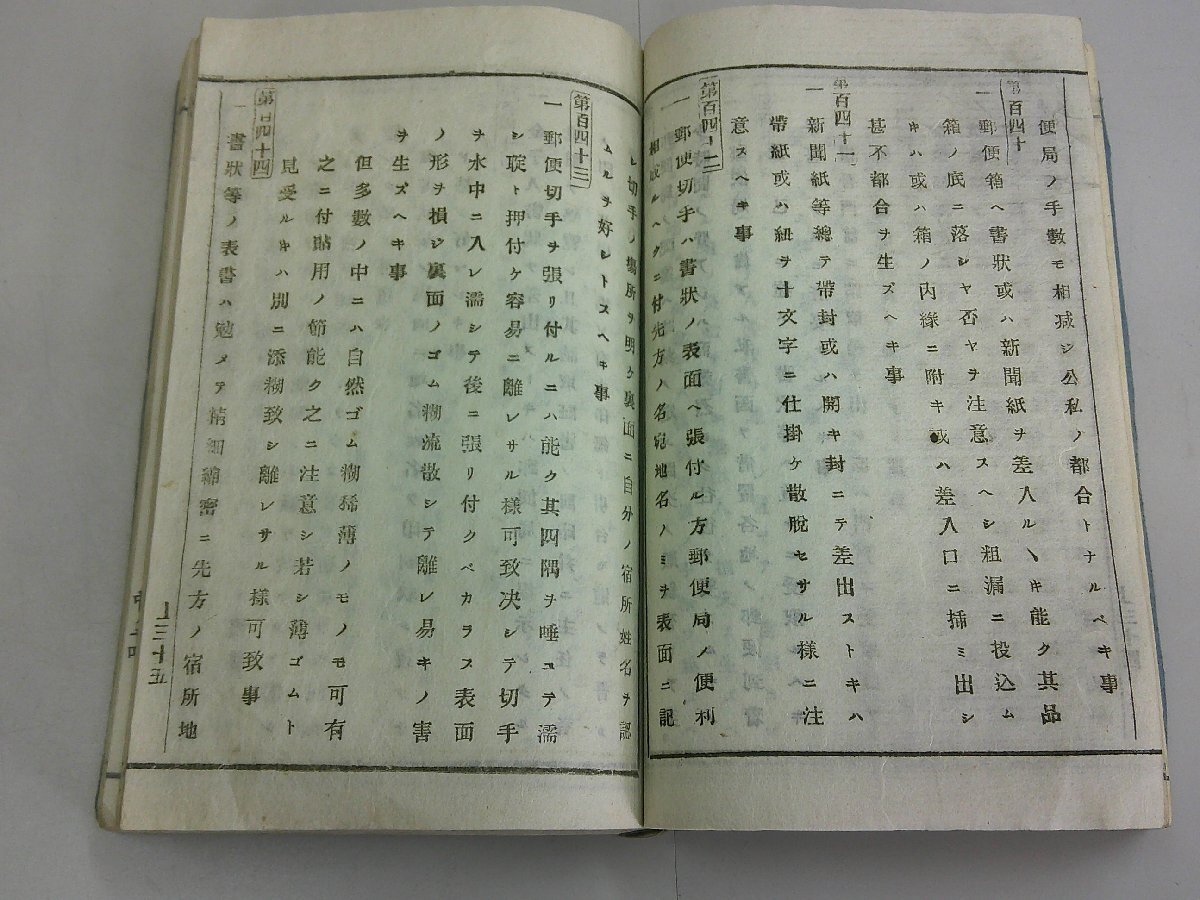 便局ノ手數モ相减シ公私ノ都合トナルベキ事
第百四十
一 郵便箱ヘ書狀或ハ新聞紙ヲ差入ルヽキ能ク其品
箱ノ底ニ落シヤ否ヤヲ注意スヘシ粗漏ニ投込ム
キハ或ハ箱ノ內樣ニ附キ或ハ差入口ニ挿ミ出シ
甚不都合ヲ生ズヘキ事
第百四十一
一 新聞紙等總テ帶封或ハ開キ封ニテ差出ストキハ
帶紙或ハ紐ヲ十文字ニ仕掛ケ散脫セサル樣ニ注
意スヘキ事
第百四十二
一 郵便切手ハ書狀ノ表面ヘ張付ル方郵便局ノ便利
相成ルヘクニ付先方ノ名宛地名ノミヲ表面ニ記
シ切手ノ場所ヲ明ケ裏面ニ自外ノ宿所姓名ヲ記
ムルヲ好シトスヘキ事
第百四十三
一 郵便切手ヲ張リ付ルニハ能ク其四隅ヲ唾ニテ濡
シ聢ト押付ケ容易ニ離レサル樣可致决シテ切手
ヲ水中ニ入レ濡シテ後ニ張リ付クベカラス表面
ノ形ヲ損シ裏面ノゴム糊流散シテ離レ易キノ害
ヲ生ズヘキ事
但多數ノ中ニハ自然ゴム糊稀薄ノモノモ可有
之ニ付貼用ノ節能ク之ニ注意シ若シ薄ゴムト
見受ルキハ別ニ添糊致シ離レサル樣可致事
第百四十四
一 書狀等ノ表書ハ勉メテ精細綿密ニ先方ノ宿所地
三十五